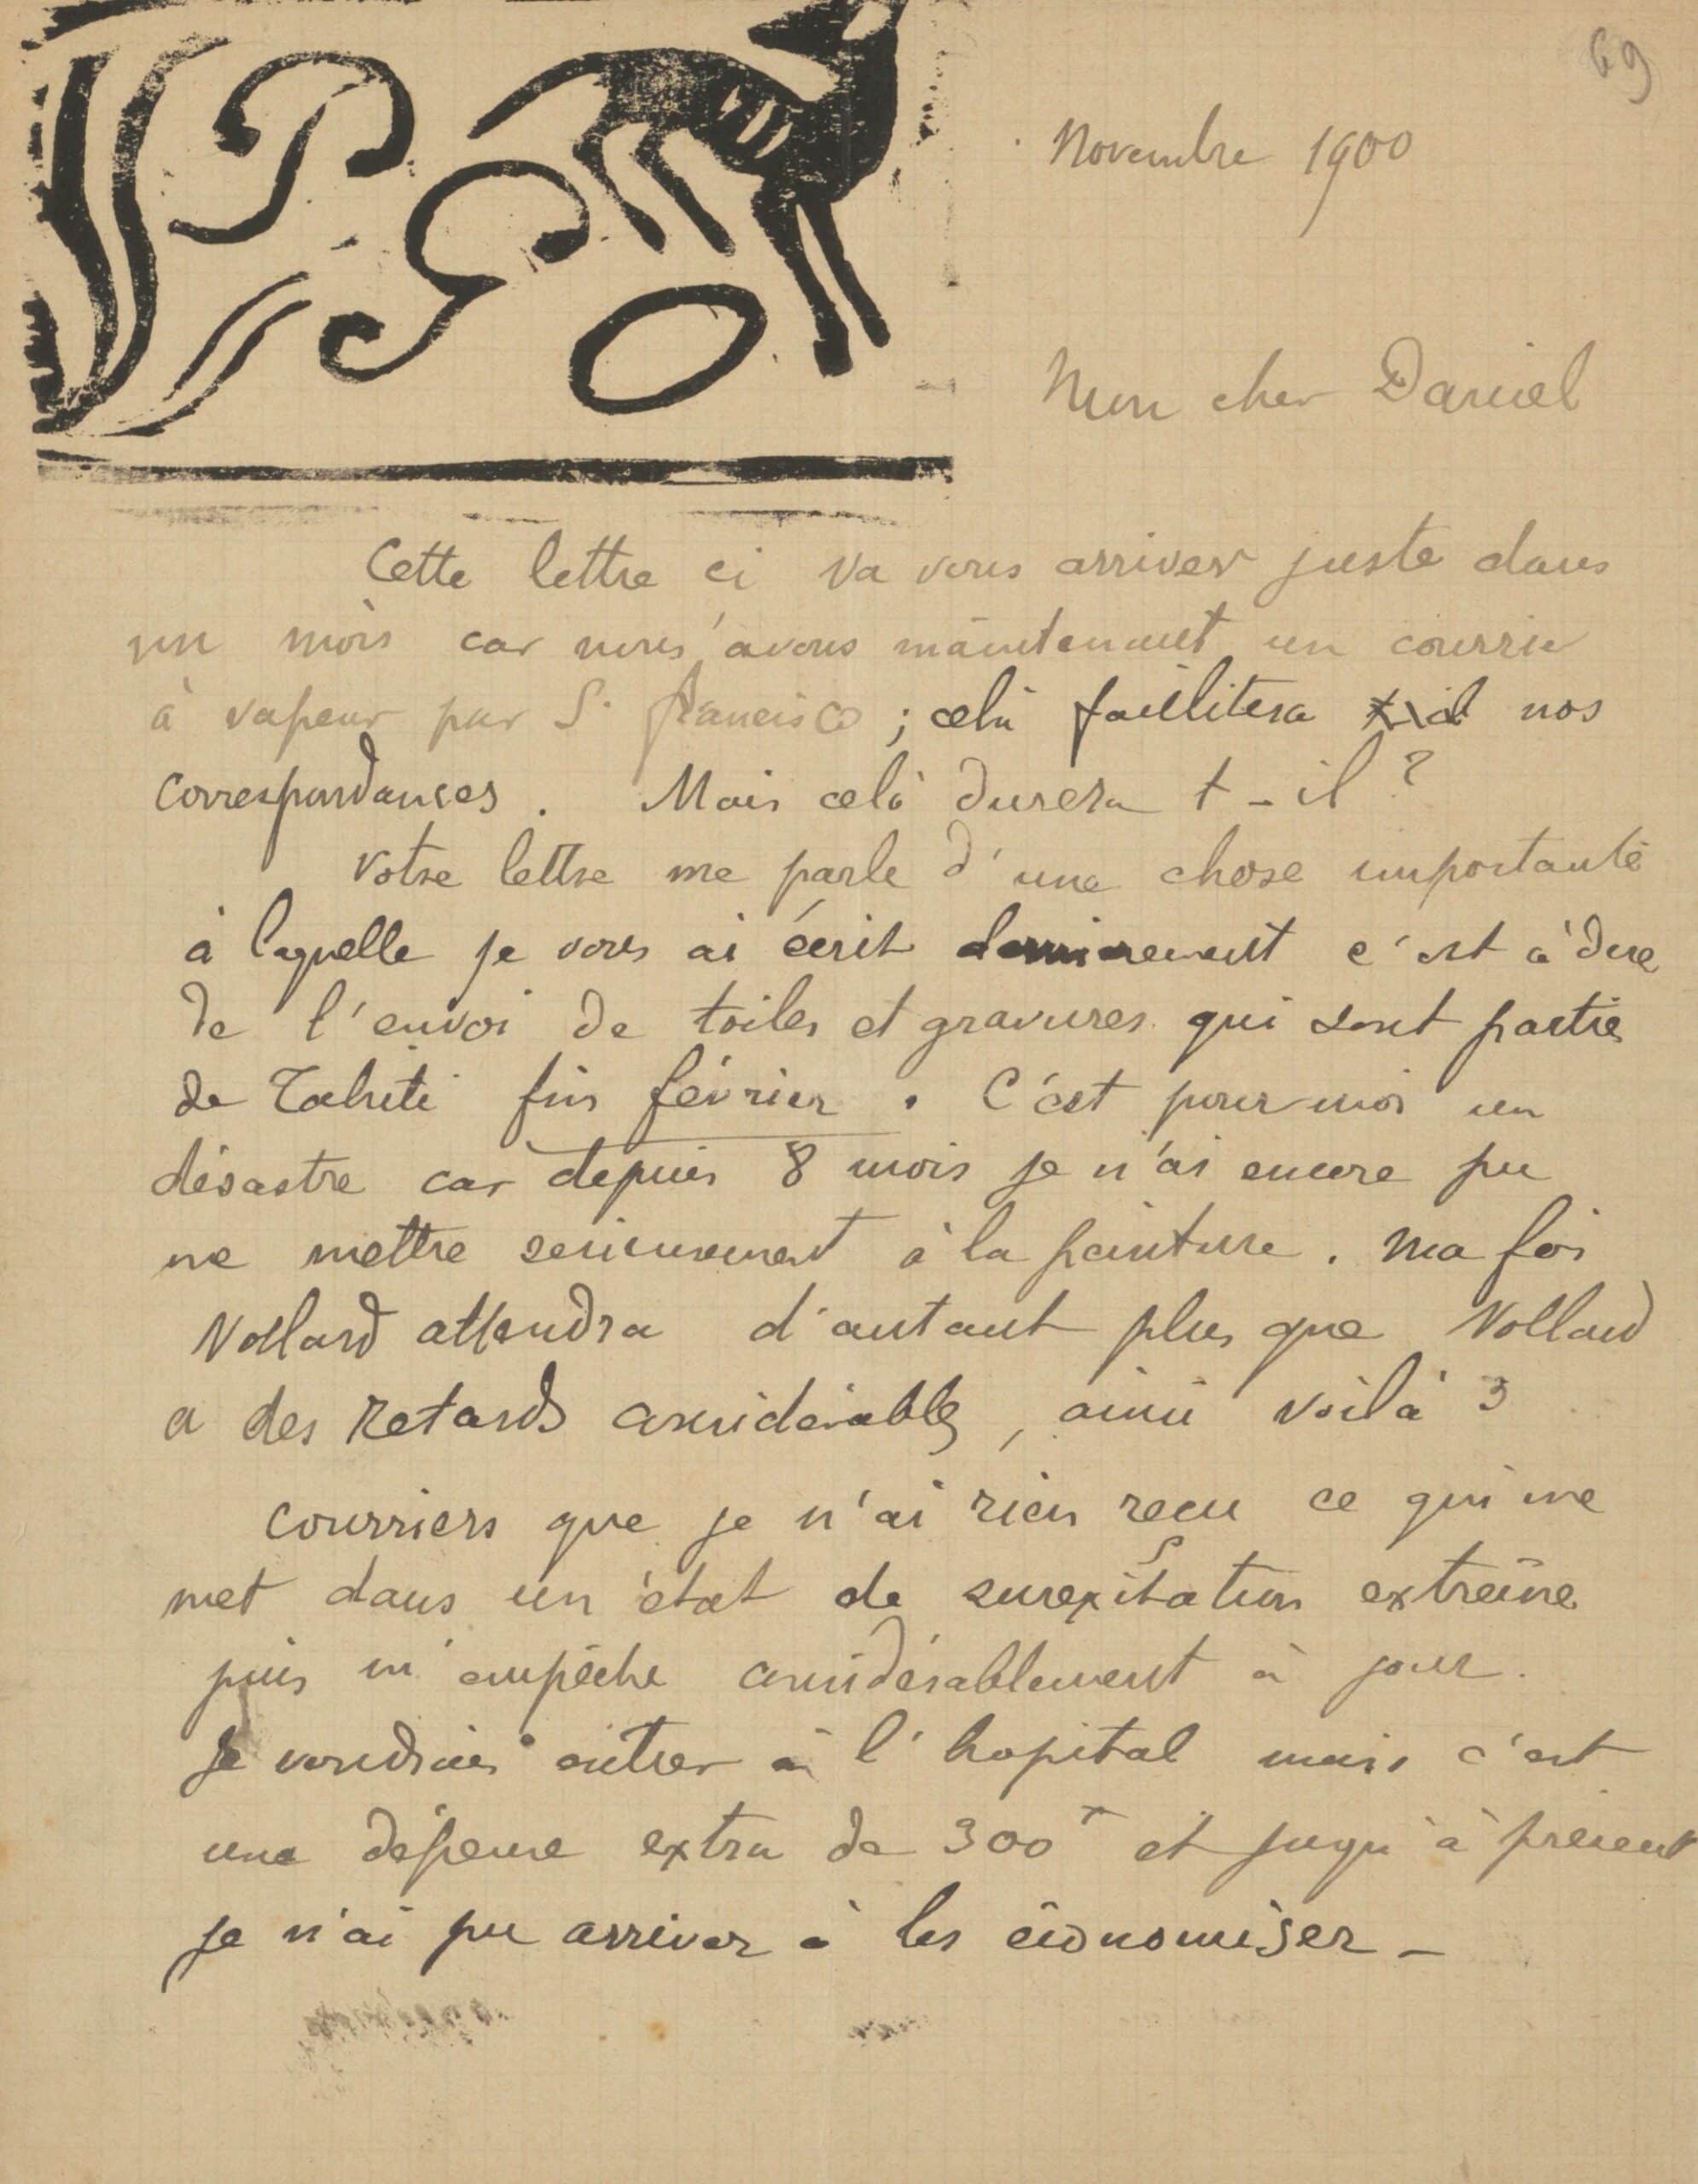 69
Novembre 1900
PGO
Mon cher Daniel
Cette lettre ci va vous arriver juste dans
un mois car nous avons maintenant un courrier
à vapeur par S. francisco ; celà facilitera nos
correspondances. Mais celà durera t-il ?
Votre lettre me parle d'une chose importante
à laquelle je vous ai écrit dernierement c'est à dire
de l'envoi de toiles et gravures qui sont parties
de Tahiti fin février. C'est pour moi un
désastre car depuis 8 mois je n'ai encore pu
me mettre serieusement à la peinture. Ma foi
Vollard attendra d'autant plus que Vollard
a des retards considérables, ainsi voilà 3
courriers que je n'ai rien reçu ce qui me
met dans un état de surexitation extrême
puis m'empêche considérablement à
Je voudrais entrer à l'hopital mais c'est
une dépense extra de 300f et jusqu'à présent
je n'ai pu arriver à les économiser_